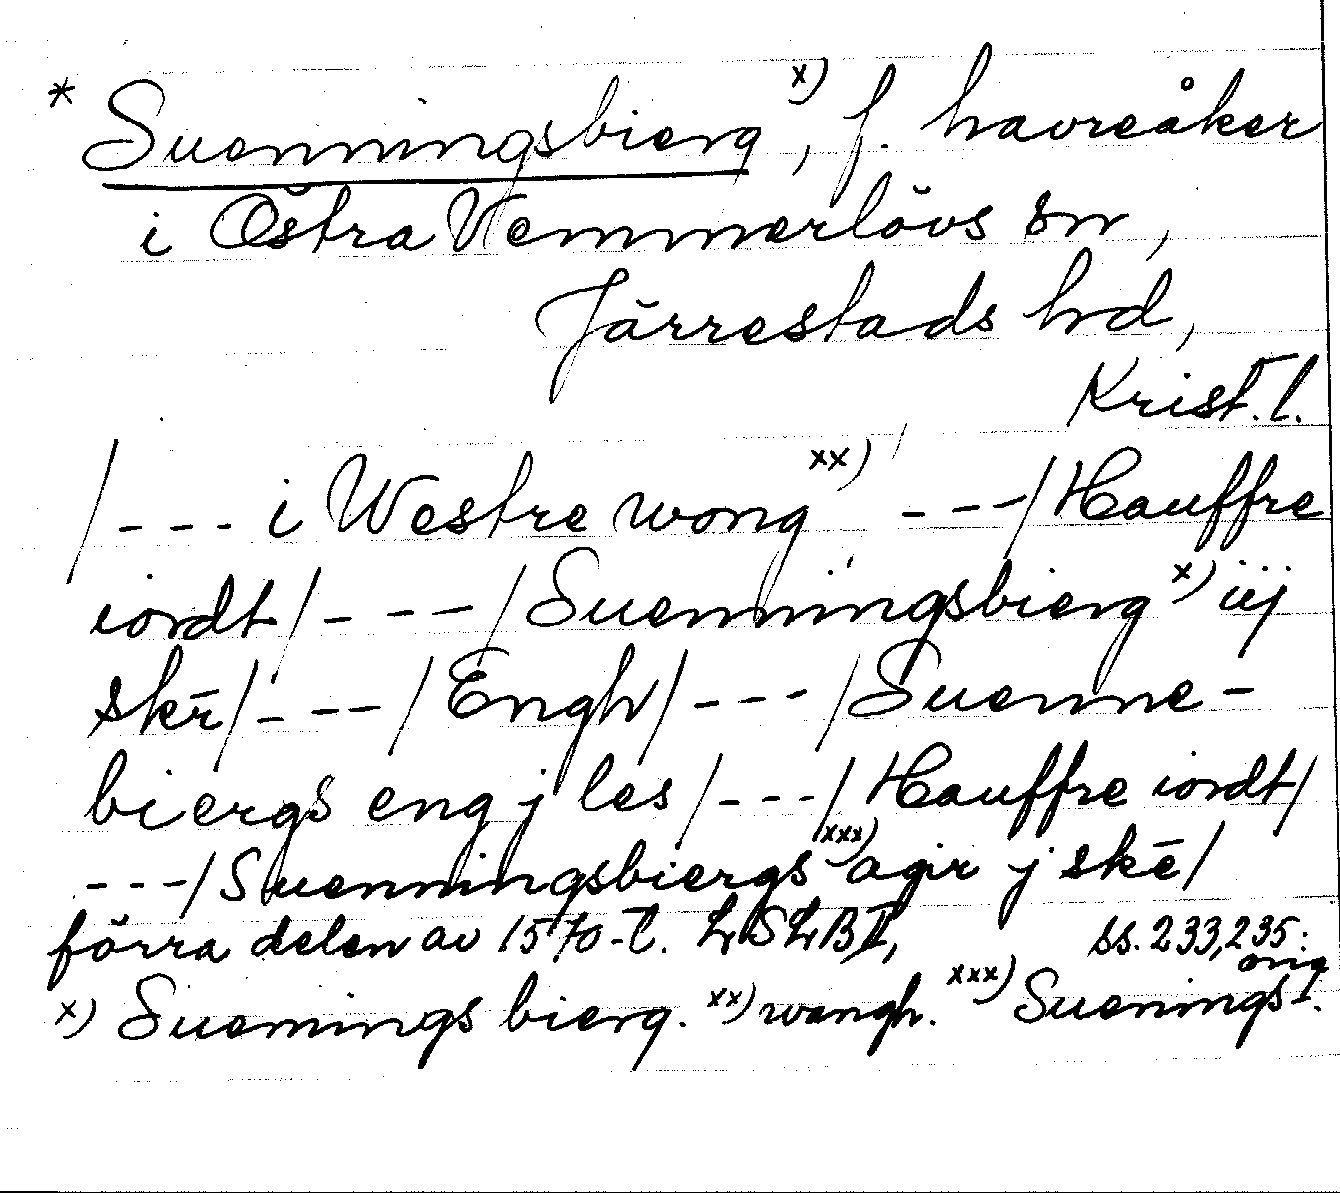 * Suenningsbierg x), f. havreåker
i Östra Vemmerlövs sn,
Järrestads hd,
Krist. l.
/--- i Westre wong xx) ---/ Hauffre
iordt/ --- /Suenningsbierg x) iij
skē/ --- /Engh/ --- /Suenne-
biergs eng j les /---/ Hauffre iordt/
---/Suenningsbiergs xxx) agir j skē/
förra delen av 1570-t. LSLB II, ss. 233, 235.
x) Suenings bierg. xx) wangh. xxx) Suenings orig I.